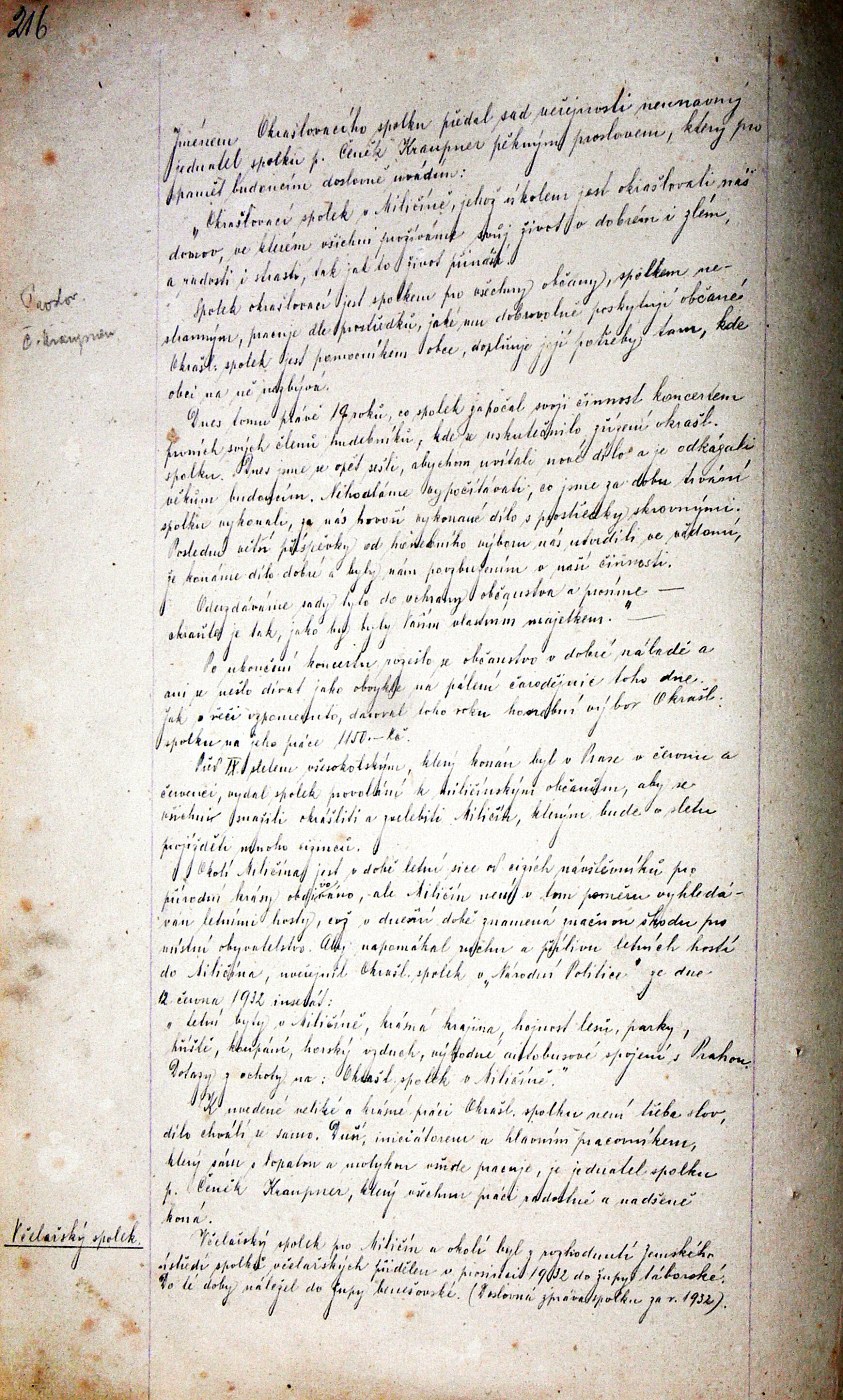 216
Jménem Okrašlovacího spolku předal sad veřejnosti neunavný
jednatel spolku p. Čeněk Kraupner pěkným proslovem, který pro
paměť budoucím doslovně uvádím:
„Okrašlovací spolek v Miličíně, jehož úkolem jest okrašlovati náš
domov, ve kterém všichni prožíváme svůj život v dobrém i zlém,
a radosti i strasti, tak jak to život přináší.
Spolek okrašlovací jest spolkem pro všechny občany, spolkem ne-
stranným, pracuje dle prostředků, jaké mu dobrovolně poskytují občané.
Okrašl. spolek jest pomocníkem obce, doplňuje její potřeby tam, kde
obci na ně nezbývá.
Č. Kraupner
Dnes tomu právě 19 roků, co spolek započal svoji činnost koncertem
prvních svých členů hudebníků, kde se uskutečnilo zřízení okrašl.
spolku. Dnes jsme se opět sešli, abychom uvítali nové dílo a je odkázali
věkům budoucím. Nehodláme vypočítávati, co jsme za dobu trvání
spolku vykonali, za nás hovoří vykonané dílo s prostředky skrovnými.
Poslední větší příspěvky od honebního výboru nás utvrdili ve vědomí,
že konáme dílo dobré a byly nám povzbuzením v naší činnosti.
Odevzdáváme sady tyto do ochrany občanstva a prosíme —
chraňte je tak, jako by byly Vaším vlastním majetkem." —
Po ukončení koncertu rozešlo se občanstvo v dobré náladě a
ani se nešlo dívat jako obvykle na pálení čarodějnic toho dne.
Jak o věci vzpomenuto, daroval toho roku honební výbor Okrašl.
spolku na jeho práce 1150.– Kč.
Před IX. sletem všesokolským, který konán byl v Praze v červnu a
červenci, vydal spolek provolání k miličínským občanům, aby se
všichni snažili okrášliti a zvelebiti Miličín, kterým bude o sletu
projížděti mnoho cizinců.
Okolí Miličína jest v době letní sice od cizích návštěvníků pro
přírodní krásy obdivováno, ale Miličín není v tom poměru vyhledá-
ván letními hosty, což v dnešní době znamená značnou škodu pro
místní obyvatelstvo. Aby napomáhal ruchu a přílivu letních hostí
do Miličína, uveřejnil Okrašl. spolek v „Národní Politice" ze dne
12. června 1932 inserát:
„Letní byty v Miličíně, krásná krajina, hojnost lesů, parky,
hřiště, koupání, horský vzduch, výhodné autobusové spojení s Prahou.
Dotazy z ochoty na: Okrašl. spolek v Miličíně."
K uvedené veliké a krásné práci Okrašl. spolku není třeba slov,
dílo chválí se samo. Duší, iniciátorem a hlavním pracovníkem,
který sám s lopatou a motykou všude pracuje, je jednatel spolku
p. Čeněk Kraupner, který všechnu práci radostně a nadšeně
koná.
Včelařský spolek.
Včelařský spolek pro Miličín a okolí byl z rozhodnutí zemského
ústředí spolků včelařských přidělen v prosinci 1932 do župy táborské.
Do té doby náležel do župy benešovské. (Doslovná zpráva spolku za r. 1932).